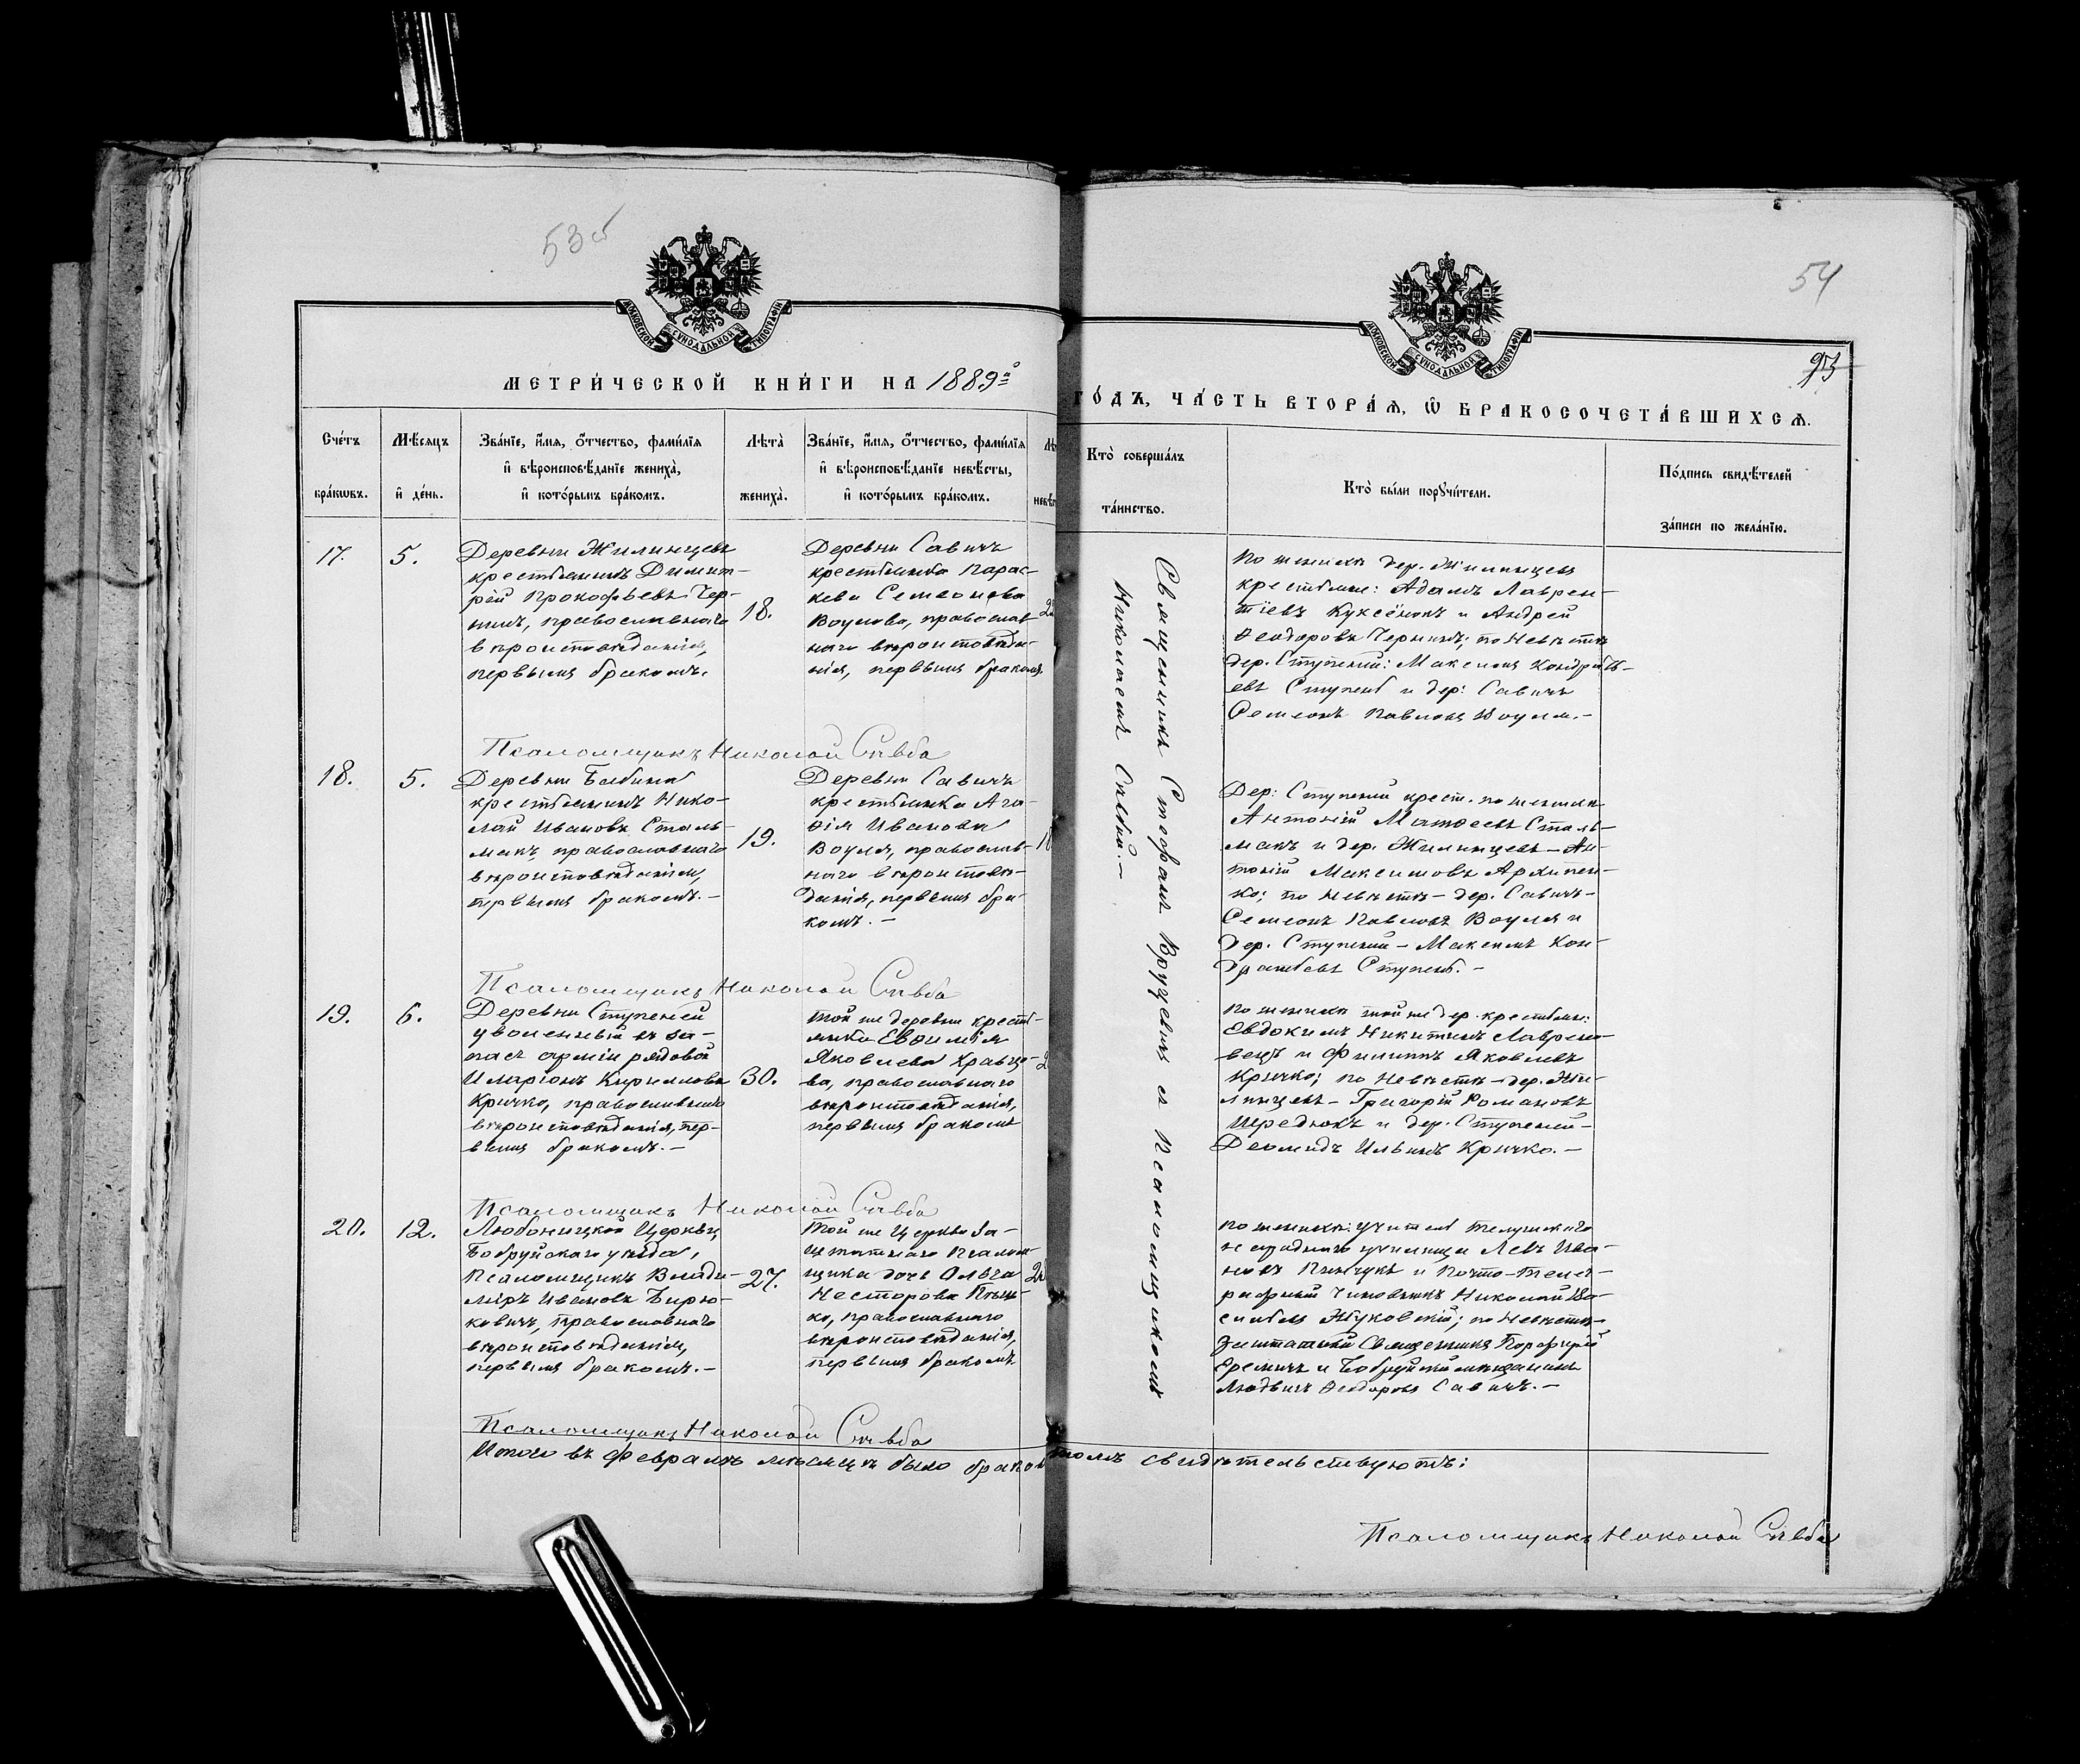 53 об
54
93
МОСКОВСКОЙ СѴНОДАЛЬНОЙ ТИПОГРАФІИ
МОСКОВСКОЙ СѴНОДАЛЬНОЙ ТИПОГРАФІИ
МЕТРИ́ЧЕСКОЙ КНИ́ГИ НА 1889й
ГО́ДЪ, ЧА́СТЬ ВТОРА́Я, Ѡ҆ БРАКОСОЧЕТА́ВШИХСЯ.
Сче́тъ
бра́кѡвъ.
Мѣ́сяцъ
и҆ де́нь.
Зва́нїе, и҆́мя, ѻ҆́тчество, фами́лїя
и҆ вѣроисповѣ́данїе жениха̀,
и҆ кото́рымъ бра́комъ.
Лѣта̀
жениха̀.
Зва́нїе, и҆́мя, ѻ҆́тчество, фами́лїя
и҆ вѣроисповѣ́данїе невѣ́сты,
и҆ кото́рымъ бра́комъ.
Кто̀ соверша́лъ
та́инство.
Кто̀ бы́ли порꙋчи́тели.
По́дпись свидѣ́телей
за́писи по жела́нїю.
17.
5.
Деревни Жилинцевъ
крестьянинъ Димит-
рій Прокофьевъ Чер-
нихъ, православнаго
вѣроисповѣданія,
первымъ бракомъ.
18.
Деревни Савичъ
крестьянка Парас-
кева Семеонова
Воулова, православ-
наго вѣроисповѣда-
нія, первымъ бракомъ.
Священникъ Стефанъ Вруцевичъ съ Псаломщикомъ
Николаемъ Савбой.-
По женихѣ дер. Жилинцевъ
крестьяне: Адамъ Лаврен-
тіевъ Куксёнокъ и Андрей
Ѳеодоровъ Чернихъ; по невѣстѣ
дер. Ступеней: Максимъ Кондрать-
евъ Ступень и дер: Савичъ
Семеонъ Павловъ Воуля.-
Псаломщикъ Николай Савба
18.
5.
Деревни Бабина
крестьянинъ Нико-
лай Ивановъ Сталь-
макъ, православнаго
вѣроисповѣданія,
первымъ бракомъ.-
19.
Деревни Савичъ
крестьянка Ага-
ѳія Иванова
Воуля, православ-
наго вѣроисповѣ-
данія, первымъ бра-
комъ.-
Дер: Ступеней крест. по женихѣ
Антоній Матѳеевъ Сталь-
макъ и дер. Жилинцевъ-Ан-
тоній Максимовъ Архипен-
ко; по невѣстѣ-дер. Савичъ-
Семеонъ Павловъ Воуля и
дер. Ступеней-Максимъ Кон-
дратьевъ Ступень.-
Псаломщикъ Николай Савба
19.
6.
Деревни Ступеней
уволенный въ за-
пасъ арміи рядовой
Иларіонъ Кирилловъ
Кричко, православнаго
вѣроисповѣданія, пер-
вымъ бракомъ.-
30.
Той же деревни кресть-
янка Евѳимія
Яковлева Кравцо-
ва, православнаго
вѣроисповѣданія,
первымъ бракомъ
По женихѣ той же дер. крестьяне:
Евдокимъ Никитинъ Лаврено-
вецъ и Филиппъ Яковлевъ
Кричко; по невѣстѣ-дер. Жи-
линцевъ-Григорій Романовъ
Середюкъ и дер. Ступеней-
Деомидъ Ильинъ Кричко.-
Псаломщикъ Николай Савба
20.
12.
Любоницкой Церкви
Бобруйскаго уѣзда,
Псаломщикъ Влади-
міръ Ивановъ Бирю-
ковичъ, православнаго
вѣроисповѣданія,
первымъ бракомъ.-
27.
Той же Церкви за-
штатнаго Псалом-
щика дочь Ольга
Несторова Птыш-
ко, православнаго
вѣроисповѣданія,
первымъ бракомъ
По женихѣ: учитель Телушскаго
народнаго училища Левъ Ива-
новъ Пинчукъ и Почто-телег-
рафный чиновникъ Николай Ва-
сильевъ Жуковскій; по невѣстѣ-
заштатный Священникъ Порфирій
Еремичъ и Бобруйскій мѣщанинъ
Людвигъ Ѳеодоровъ Савичъ.-
Псаломщикъ Николай Савба
Итого въ Февралѣ мѣсяцѣ было браков
томъ свидѣтельствуютъ:
Псаломщикъ Николай Савба